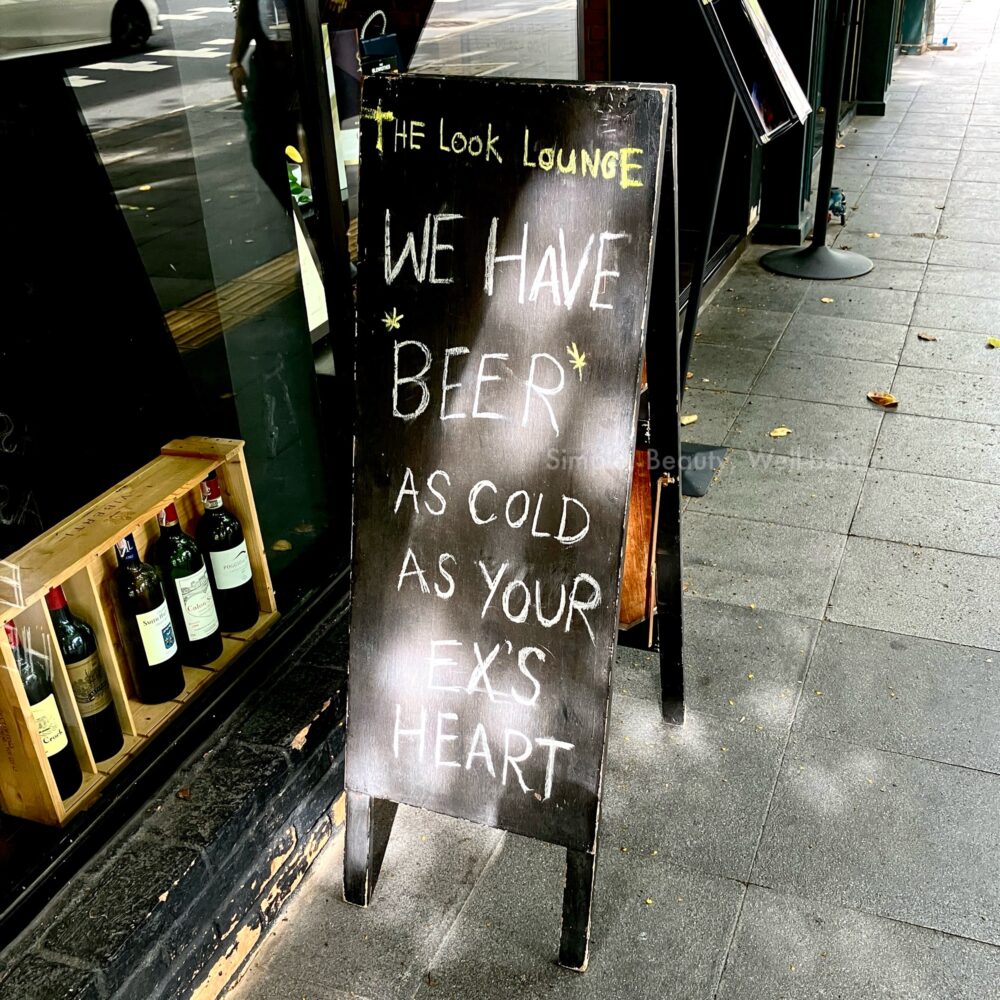 THE LOOK LOUNGE
WE HAVE
*BEER*
AS COLD
AS YOUR
EX'S
HEART
Simple Beauty Well-being